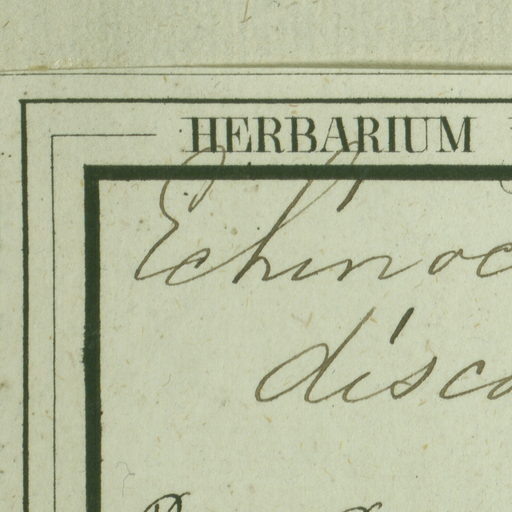 HERBARIUM
Echinoc
disco